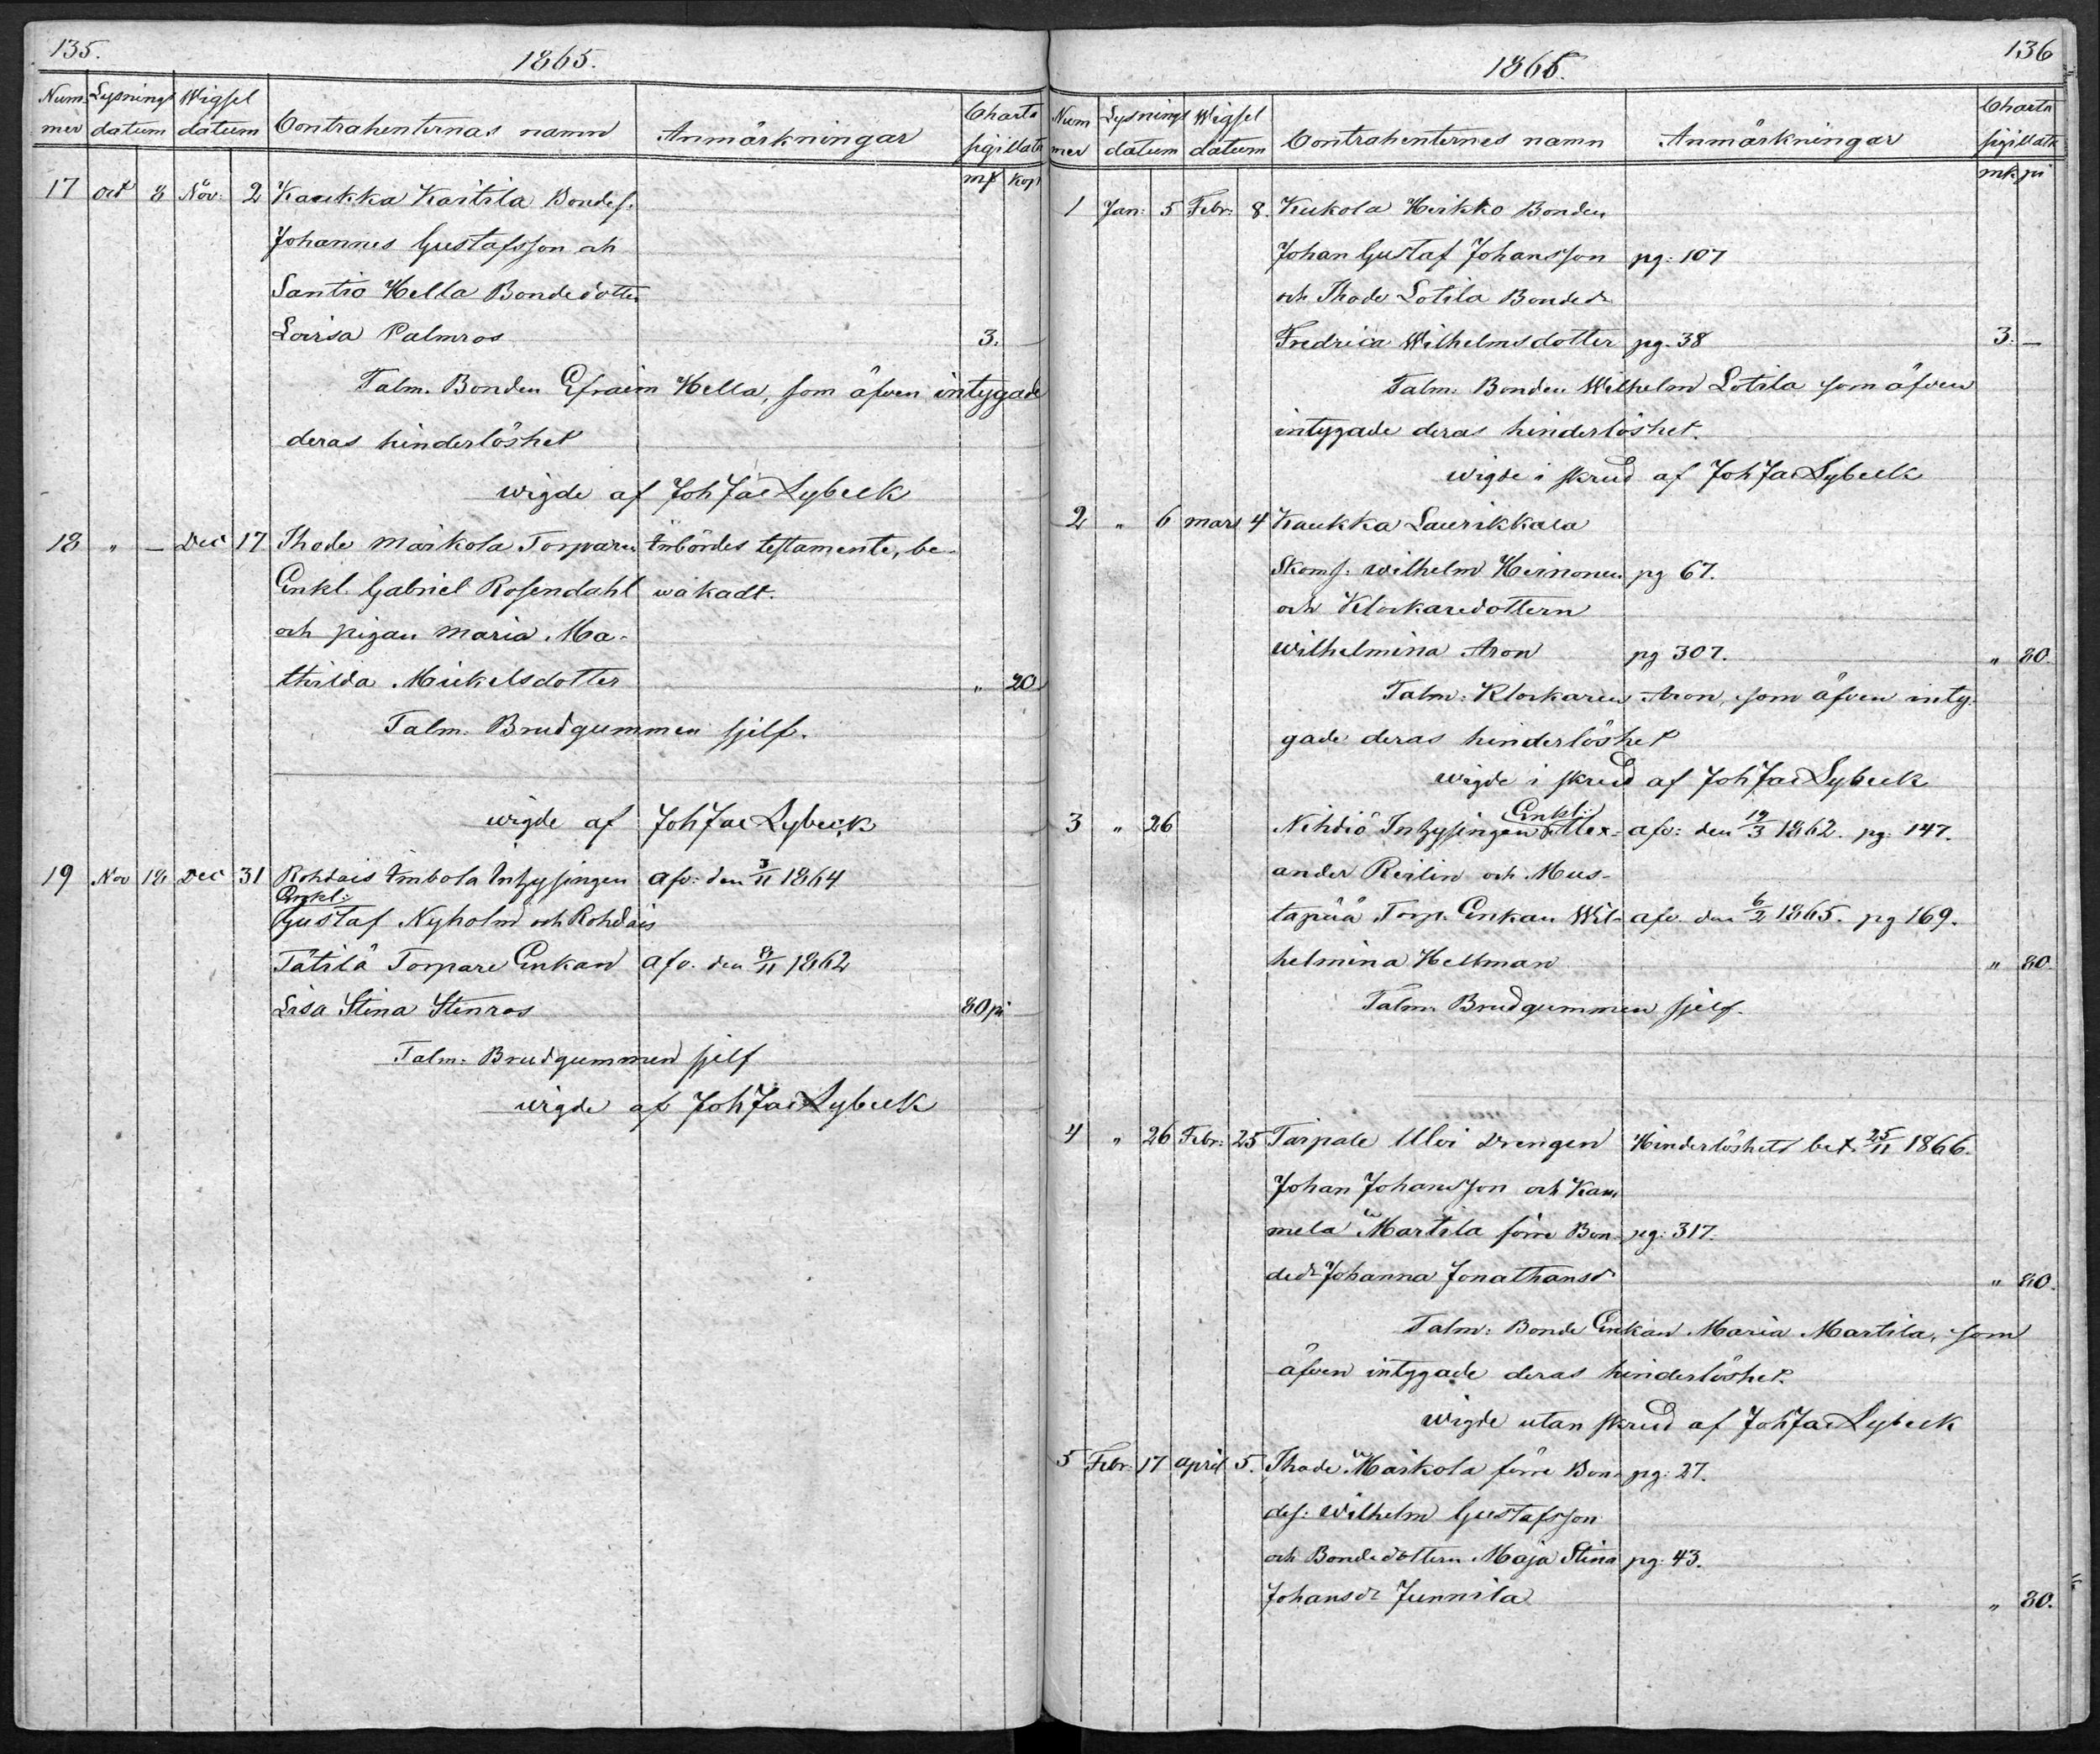 135.
1865.
Num- Lysnings Wigsel Charta
mer datum datum Contrahenternas namn Anmärkningar sigillata
mk kop
17 Oct 8 Nov: 2 Kaukka Kaitila Bondes.
Johannes Gustafsson och
Santio Hella Bondedotter
Lovisa Palmros 3.
Talm. Bonden Efraim Hella, som äfven intygade
deras hinderlöshet
wigde af Joh Jac Lybeck
18 " — Dec 17 Thode Maikola Torparen Inbördes testamente, be-
Enkl. Gabriel Rosendahl wakadt.
och pigan Maria Ma-
thilda Mickelsdotter " 20
Talm. Brudgummen sjelf.
wigde af Joh Jac Lybeck
19 Nov 18 Dec 31 Rohdais Imbola Inhysingen afv: den 3/11 1864
Enkl:
Gustaf Nyholm och Rohdais
Tätilä Torpare Enkan afv. den 8/11 1862
Lisa Stina Stenros 80 pi
Talm: Brudgummen sjelf
wigde af Joh Jac Lybeck
136
1866.
Num Lysnings Wigsel Charta
mer datum datum Contrahenternes namn Anmärkningar sigillata
mk pi
1 Jan: 5 Febr: 8. Kukola Heikko Bonden
Johan Gustaf Johansson pg: 107
och Thode Lotila Bondedr
Fredrica Wilhelmsdotter pg. 38 3. —
Talm: Bonden Wilhelm Lotila som äfven
intygade deras hinderlöshet.
wigde i skrud af Joh Jac Lybeck
2 " 6 mars 4 Kaukka Laurikkala
Skoms: Wilhelm Heinonen pg 67.
och Klockaredottern
Wilhelmina Aron pg 307. " 80.
Talm: Klockaren Aron, som äfven inty-
gade deras hinderlöshet
wigde i skrud af Joh Jac Lybeck
Enkl:
3 " 26 Nihdiö Inhysingen Alex- afv: den 19/3 1862. pg. 147.
ander Reilin och Mus-
tapää Torp. Enkan Wil- afv. den 6/2 1865. pg 169.
helmina Hellman " 80.
Talm: Brudgummen sjelf.
4 " 26 Febr: 25 Taipale Ulvi Drengen Hinderlöshets bet. 25/11 1866.
Johan Johansson och Kam
mela Martila förre Bon- pg: 317.
dedr Johanna Jonathansdr " 80.
Talm: Bonde Enkan Maria Martila, som
äfven intygade deras hinderlöshet.
wigde utan skrud af Joh Jac Lybeck
5 Febr: 17 april 5. Thode Maikola förre Bon- pg: 27.
des: Wilhelm Gustafsson
och Bondedottern Maja Stina pg: 43.
Johansdr Junnila " 80.